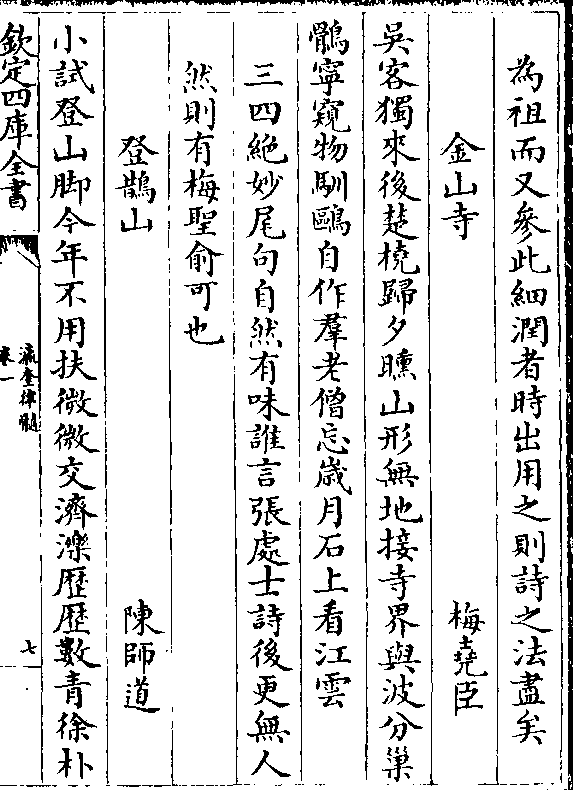 為祖而又參此細潤者時出用之則詩之法盡矣
金山寺 梅堯臣
吳客獨來後楚橈歸夕曛山形無地接寺界與波分巢
鶻寧窺物馴鷗自作羣老僧忘歲月石上看江雲
三四絶妙尾句自然有味誰言張處士詩後更無人
然則有梅聖俞可也
登鵲山 陳師道
小試登山脚今年不用扶微微交濟濼歴歴數青徐朴
欽定四庫全書
瀛奎律髓
卷一
七